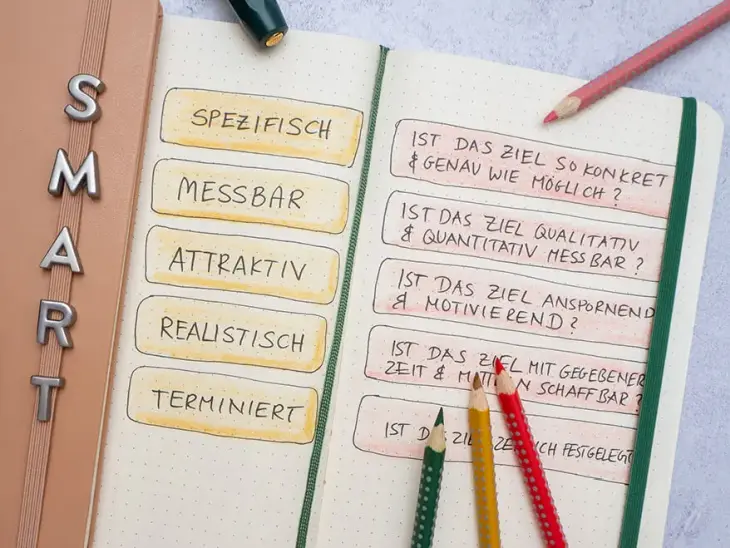 SMART
SPEZIFISCH
MESSBAR
ATTRAKTIV
REALISTISCH
TERMINIERT
IST DAS ZIEL SO KONKRET
& GENAU WIE MÖGLICH?
IST DAS ZIEL QUALITATIV
& QUANTITATIV MESSBAR?
IST DAS ZIEL ANSPORNEND
& MOTIVIEREND?
IST DAS ZIEL MIT GEGEBENER
ZEIT & SCHAFFBAR?
IST ZIEL FESTGELEGT